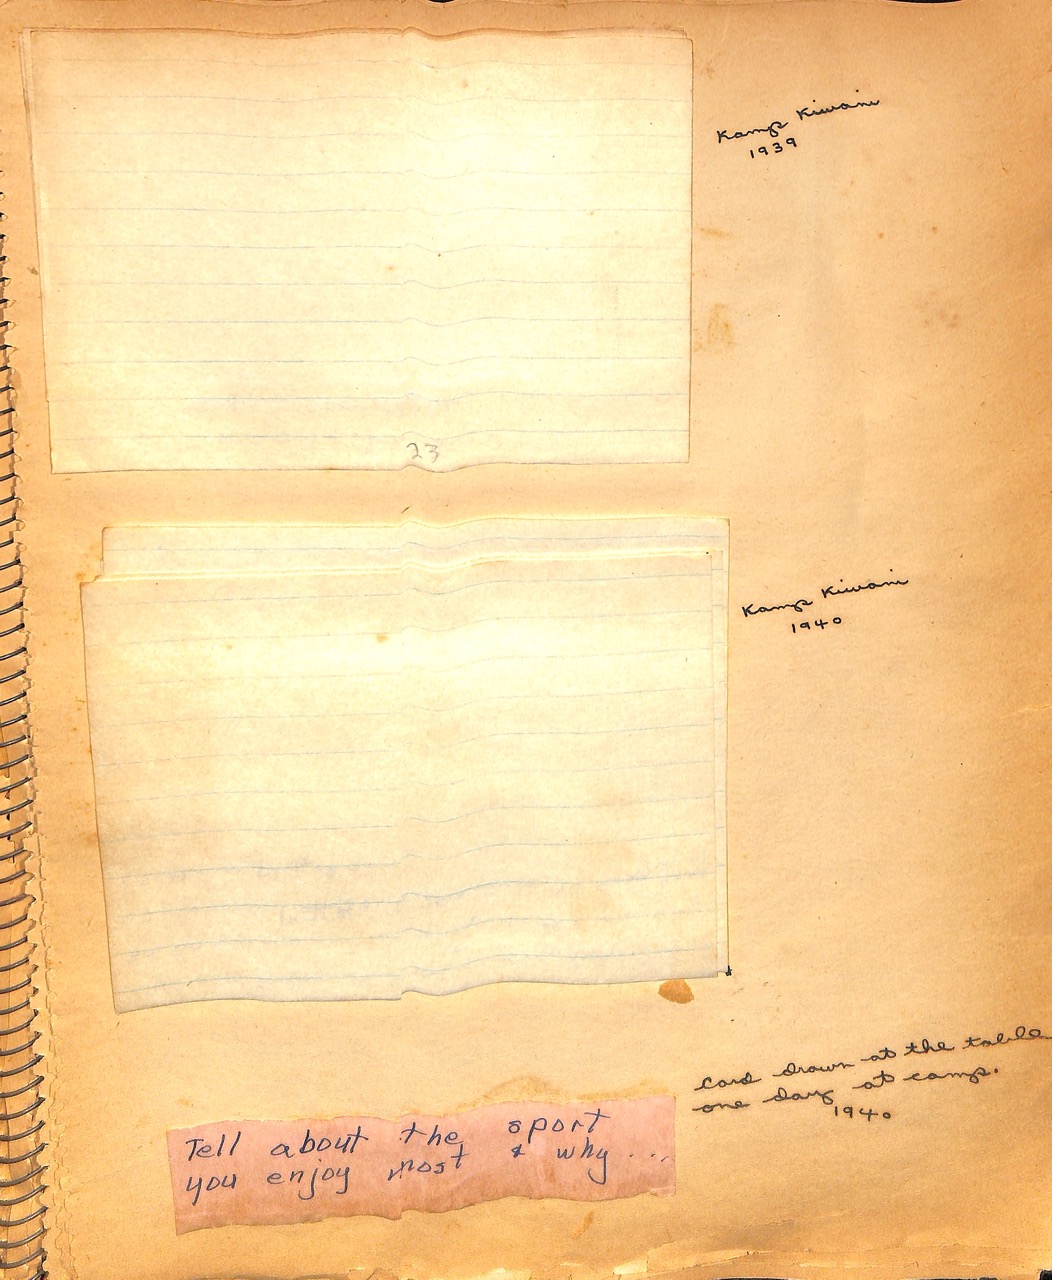 Kamp Kiwani
1939
23
Kamp Kiwani
1940
Card drawn at the table
one day at camp.
1940
Tell about the sport
you enjoy most & why...